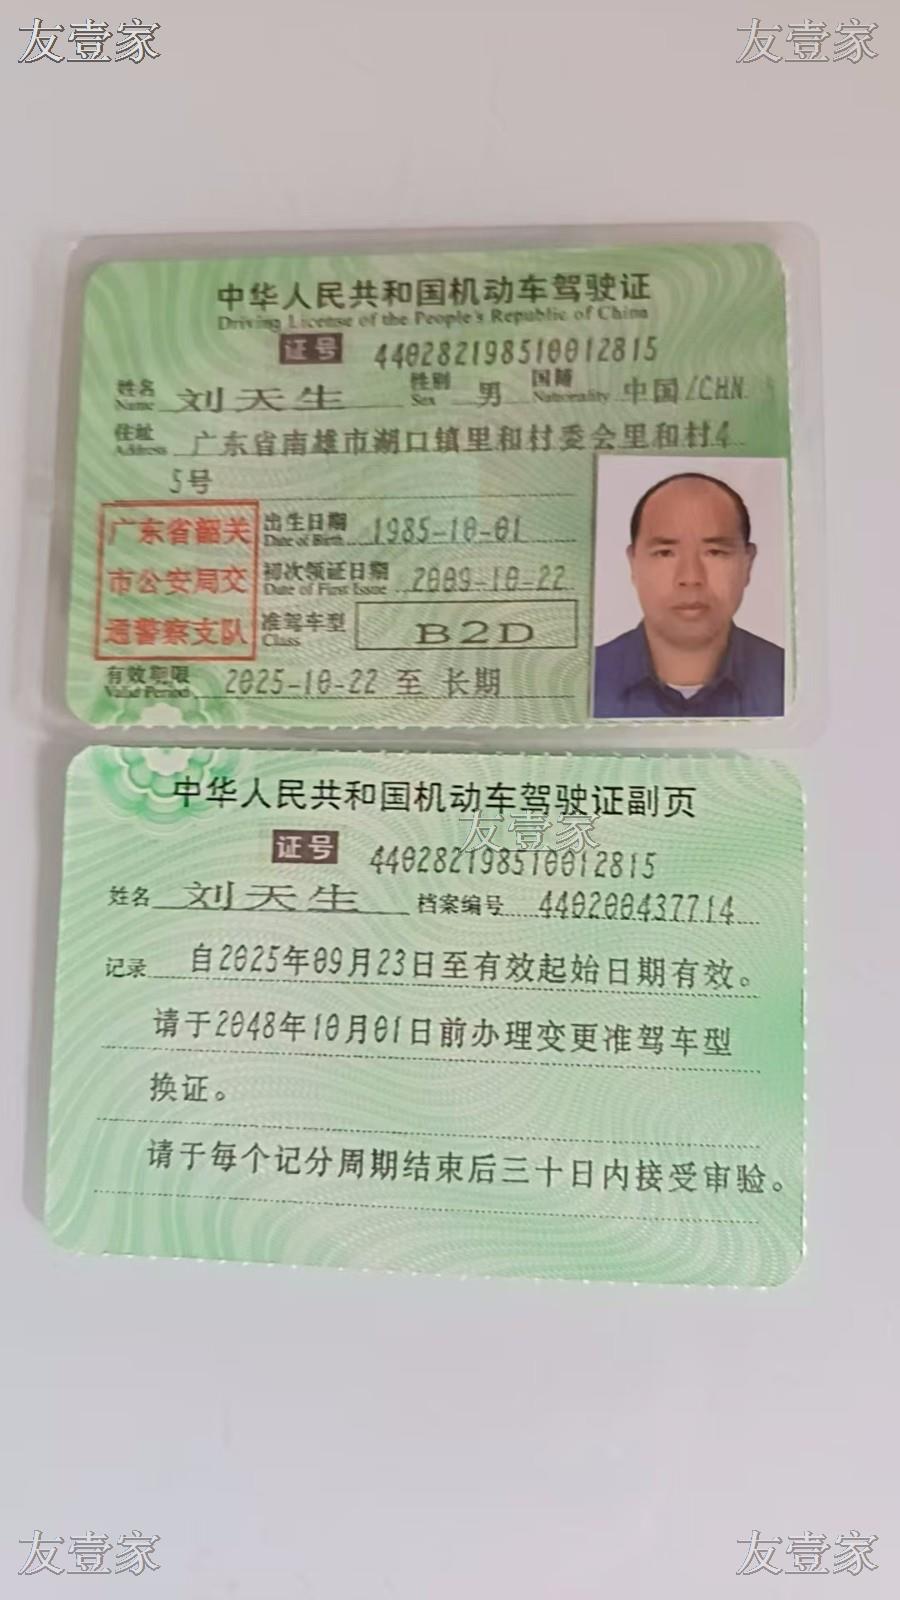 友壹家 友壹家
中华人民共和国机动车驾驶证
Driving License of the People's Republic of China
证号 440282198510012815
姓名 Name 刘天生 性别 Sex 男 国籍 Nationality 中国/CHN
住址 Address 广东省南雄市湖口镇里和村委会里和村4
5号
广东省韶关
市公安局交
通警察支队
出生日期 Date of Birth 1985-10-01
初次领证日期 Date of First Issue 2009-10-22
准驾车型 Class B2D
有效期限 Valid Period 2025-10-22 至 长期
中华人民共和国机动车驾驶证副页
友壹家
证号 440282198510012815
姓名 刘天生 档案编号 440200437714
记录 自2025年09月23日至有效起始日期有效。
请于2048年10月01日前办理变更准驾车型
换证。
请于每个记分周期结束后三十日内接受审验。
友壹家 友壹家